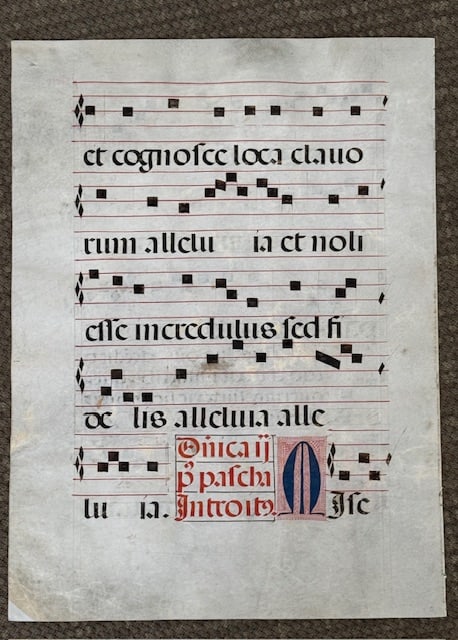 et cognosce loca clavo
rum allelu ia et noli
esse incredulus sed fi
de lis alleluia alle
Dñica ij
p̃ pascha
lu ia. Introitꝰ. M Ise